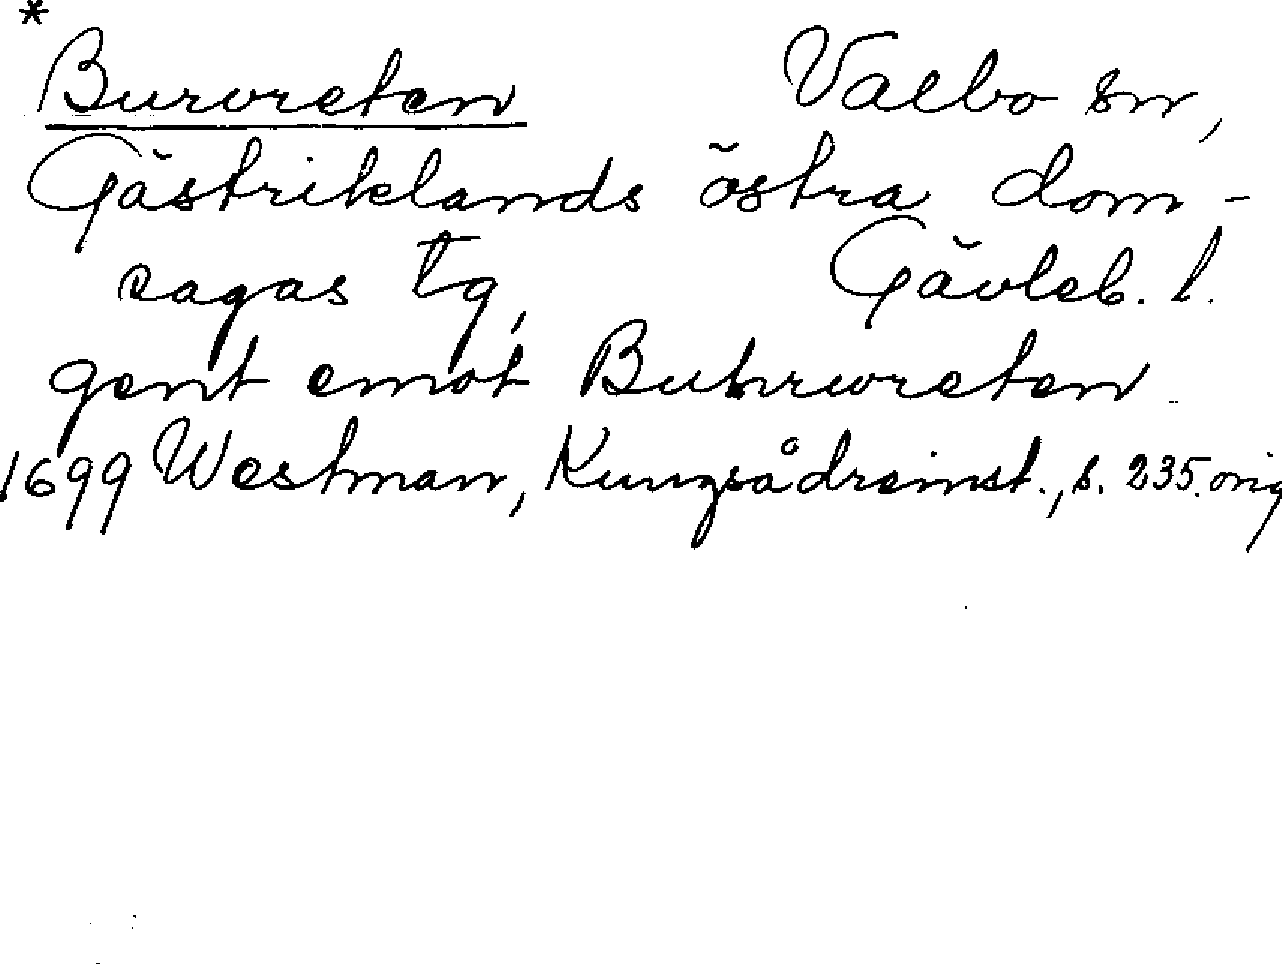 *
Burvreten Valbo sn,
Gästriklands östra dom-
sagas tg, Gävleb. l.
gent emot Buhrwreten
1699 Westman, Kungsådreinst., s. 235. orig